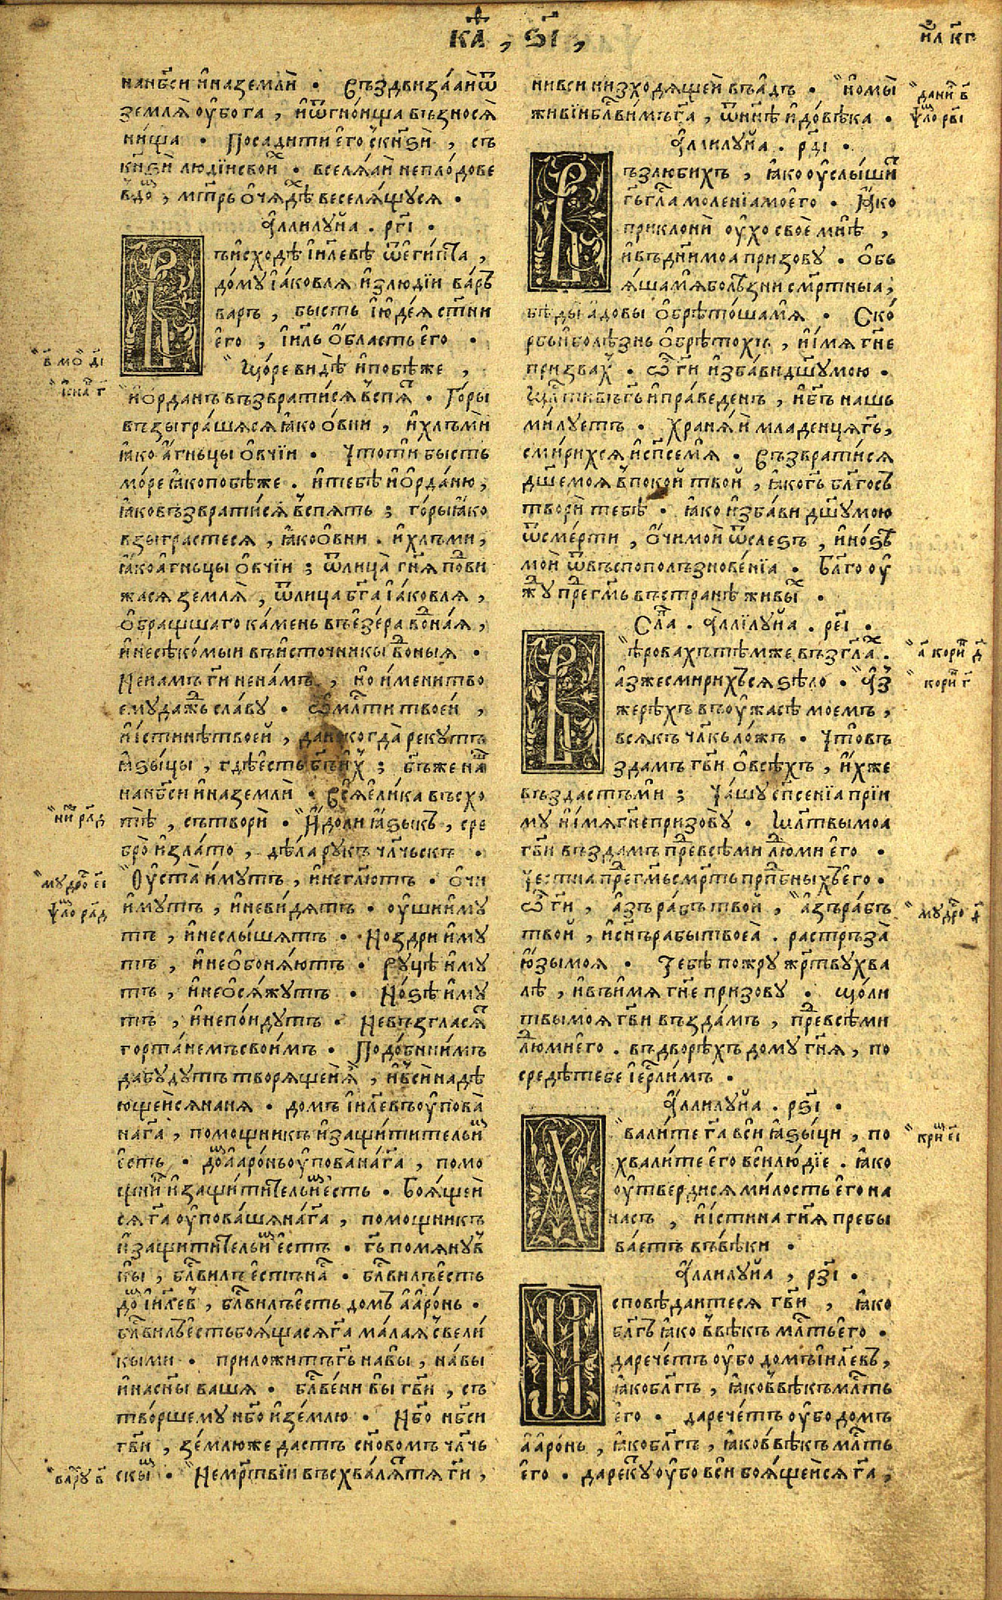 каѳ, ѕ҃і,
нанб҃си и҆наземли̏ . Въздвиза́ѧи ѿ
землѧ̀ оу҆бо́га , и҆ѿгно́ища възносѧ̀
ни́ща . Посадити е҆го̀ съкн҃ѕи , съ
кн҃ѕи люді́исвои́х . вселѧ́ѧи непло́довь
вдо́м , мт҃рь ѻ҆ча́дѣ веселѧ́щуся .
А҆ллилу́иа . рг҃і .
Въи҆схо́дѣ і҆и҃левѣ ѿе҆ги́пта ,
до́му і҆а́ковлѧ и҆злюді́и ва́рь
варъ , бысть і҆юде́ѧ ст҃ни
е҆го̀ , і҆и҃ль ѻ҆́бласть е҆го̀ .
Мо́ре ви́дѣ и҆побѣ́же ,
и҆ѻ҆рда́нъ възврати́сѧ въспѧ́т . Го́ры
възыгра́шѧсѧ ꙗ҆́ко ѻ҆вни , и҆хлъми̏
ꙗ҆́ко а҆́гньцы ѻ҆́вчїи . Что́ти бысть
мо́ре ꙗ҆́ко побѣ́же . и҆тебѣ̀ и҆ѻ҆рда́ню ,
ꙗ҆́ко възврати́сѧ въспѧть ; го́ры ꙗ҆́ко
взыгра́стесѧ , ꙗ҆́ко ѻ҆вни . и҆хлъми ,
ꙗ҆́ко а҆́гньцы ѻ҆́вчїи ; ѿлица̀ гн҃ѧ подви
жасѧ землѧ̀ , ѿлица бг҃а і҆а́ковлѧ ,
ѻ҆бра́щшаго ка́мень въе҆зе́ра во́днаѧ ,
и҆несѣко́мыи въи҆сто́чникы во́дныѧ .
Ненамъ гн҃и нена́мъ , но и҆́мени тво
ему да́ждь сла́ву . Ѻ҆ мл҃ти твое́й ,
и҆і҆́стинѣ твоей , да некогда́ рекутъ
ꙗ҆зы́цы , гдѣ́ есть бг҃ъ и҆́х ; бг҃ъже на́ш
нанб҃си и҆наземли̏ . Всѧ̀ е҆ли́ка въсхо
тѣ̀ , сътвори̏ . И҆́доли ꙗ҆зы́къ , сре
бро̀ и҆зла́то , дѣ́ла рукъ чл҃чьскъ .
Оу҆ста̀ и҆́мутъ , и҆негл҃ютъ . ѻ҆́чи
и҆́мутъ , и҆неви́дѧтъ . оу҆́ши и҆́му
тъ , и҆неслы́шѧтъ . Но́здри и҆́му
тъ , и҆неѻ҆боня́ютъ . Ру́цѣ и҆́му
тъ , и҆неѻ҆сѧ́жутъ . Но́ѕѣ и҆́му
тъ , и҆непо́идутъ . Невъзгласѧ́т
горта́немъ свои́мъ . Подо́бни и҆́мъ
да бу́дутъ творѧ́щеи ѧ҆̀ , и҆вси̏ надѣ
ющеисѧ нанѧ . домъ і҆и҃левъ оу҆пова̀
нага҃ , помощникъ и҆защи́титель и҆́м
е҆́сть . до́м а҆аро́нь оу҆пова̀ нага҃ , помо
щни́к и҆защи́титель и҆́м е҆́сть . Боѧ́щеи
сѧ га҃ оу҆пова́шѧ нага҃ , помощникъ
и҆защи́титель и҆́м е҆́стъ . гь҃ помѧну́в
ны , бл҃гвилъ е҆́стъ на́с . бл҃гвилъ е҆́сть
до́м і҆и҃левъ , бл҃гвилъ е҆́сть домъ а҆аро́нь .
бл҃гвилъ е҆́сть боѧ́щасѧ га҃ ма́лаѧ съвели́
кыми . приложи́тъ гь҃ на вы , на вы
и҆насн҃ы вашѧ . бл҃гве́ни вы гв҃и , съ
тво́ршему нб҃о и҆зе́млю . Нб҃о нб҃си
гв҃и , зе́млюже дастъ сн҃овомъ чл҃чь
скы́м . Неме́ртвїи въсхва́лѧт тѧ гн҃и ,
нивси низходѧ́щеи въа҆́дъ . но мы̀
жи́вїи бл҃гви́мъ га҃ , ѿнн҃ѣ и҆до́вѣка .
А҆ллилу́иа . рд҃і .
Възлюбихъ , ꙗ҆́ко оу҆слы́шит
гь҃ гла́съ моле́нїа мое́го . Ꙗ҆́ко
приклони̏ оу҆́хо своѐ мнѣ̀ ,
и҆въдни̏ моа призову̀ . Ѻ҆бь
ѧ́ша мѧ̀ болѣ́зни см҃ртныа ,
бѣды а҆́довы ѻ҆брѣто́ша мѧ̀ . Ско́
рбь и҆болѣ́знь ѻ҆брѣто́хъ , и҆и҆́мѧ гн҃е
призва́х . Ѻ҆ гн҃и и҆зба́ви дш҃у мою̀ .
Мл҃тивъ гь҃ и҆пра́веденъ , и҆бг҃ъ нашь
ми́луетъ . Хранѧ́и младе́нца гь҃ ,
смири́хсѧ и҆сп҃се мѧ̀ . Възврати́сѧ
дш҃е моѧ̀ въпоко́й тво́й , ꙗ҆́ко гь҃ бл҃госъ
твори̏ тебѣ̀ . ꙗ҆́ко и҆зба́ви дш҃у мою̀
ѿсме́рти , ѻ҆́чи мои ѿсле́зъ , и҆но́ѕѣ
мои̏ ѿвъспополъзнове́нїа . Бл҃гоу
жу̀ прег҃мь въстранѣ̀ живы́х .
Сла́в . А҆ллілу́иа . ре҃і .
Вѣ́ровахъ тѣ́мже възгл҃ах .
а҆́зже смири́хъсѧ ѕѣло̀ . а҆́з
же рѣ́хъ въоу҆́жасѣ мое́мъ ,
всѧ́къ чл҃къ ло́жъ . Что̀ въ
зда́мъ гв҃и ѻ҆всѣ́хъ , и҆́хже
въздастъ ми̏ ; Ча́шу сп҃сенїа прїи
му̀ и҆и҆́мѧ гн҃е призову̀ . мл҃твы моа
гв҃и възда́мъ пре́д всѣми лю́дми е҆го̀ .
Честна̀ прег҃мь см҃рть прп҃бныхъ е҆го̀ .
Ѻ҆ гн҃и , а҆́зъ ра́бъ твой , а҆́зъ ра́бъ
твои , и҆сн҃ъ рабы̀ твоеа̀ . растръза̀
ю҆́зы моѧ̀ . Тебѣ̀ пожру̀ же́ртву хва
лѣ̀ , и҆въи҆́мѧ гн҃е призову̀ . мо́ли
твы моѧ̀ гв҃и възда́мъ , пре́д всѣ́ми
лю́дми е҆го̀ . въдворѣ́хъ до́му гн҃ѧ , по
средѣ̀ тебѐ і҆ер҃лимъ .
А҆ллилу́иа . рѕ҃і .
Хвали́те га҃ вси̏ ꙗ҆зы́ци , по
хвали́те е҆го̀ вси̏ лю́дїе . ꙗ҆́ко
оу҆тверди́сѧ ми́лость е҆го̀ на
насъ , и҆и҆́стина гн҃ѧ пребы
ва́етъ въвѣ́ки .
А҆ллилу́иа , рз҃і .
И҆сповѣ́даитесѧ гв҃и , ꙗ҆́ко
бл҃гъ ꙗ҆́ко въвѣ́къ мл҃ть е҆го̀ .
да рече́тъ оу҆́бо домъ і҆и҃левъ ,
ꙗ҆́ко бл҃гъ , ꙗ҆́ко въвѣ́къ мл҃ть
е҆го̀ . да рече́тъ оу҆́бо домъ
а҆аро́нь , ꙗ҆́ко бл҃гъ , ꙗ҆́ко въвѣ́къ мл҃ть
е҆го̀ . да реку́т оу҆́бо вси̏ боѧ́щеисѧ га҃ ,